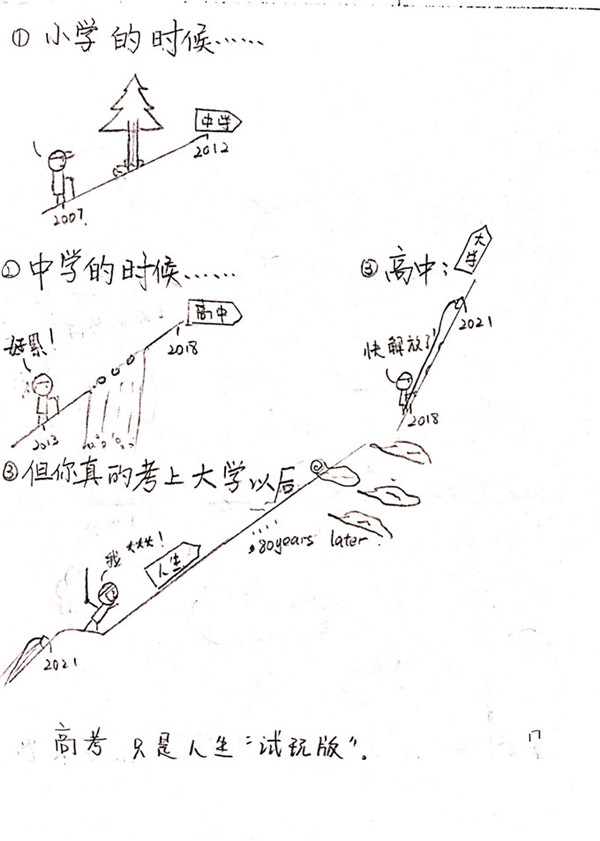 ① 小学的时候……
中学
2012
2007.
② 中学的时候……
高中
2018
好累！
2013
③ 高中：
大学
2021
快解放了！
2018
③ 但你真的考上大学以后
80years later.
我 ***！
人生
2021
高考 只是人生“试玩版”.
17